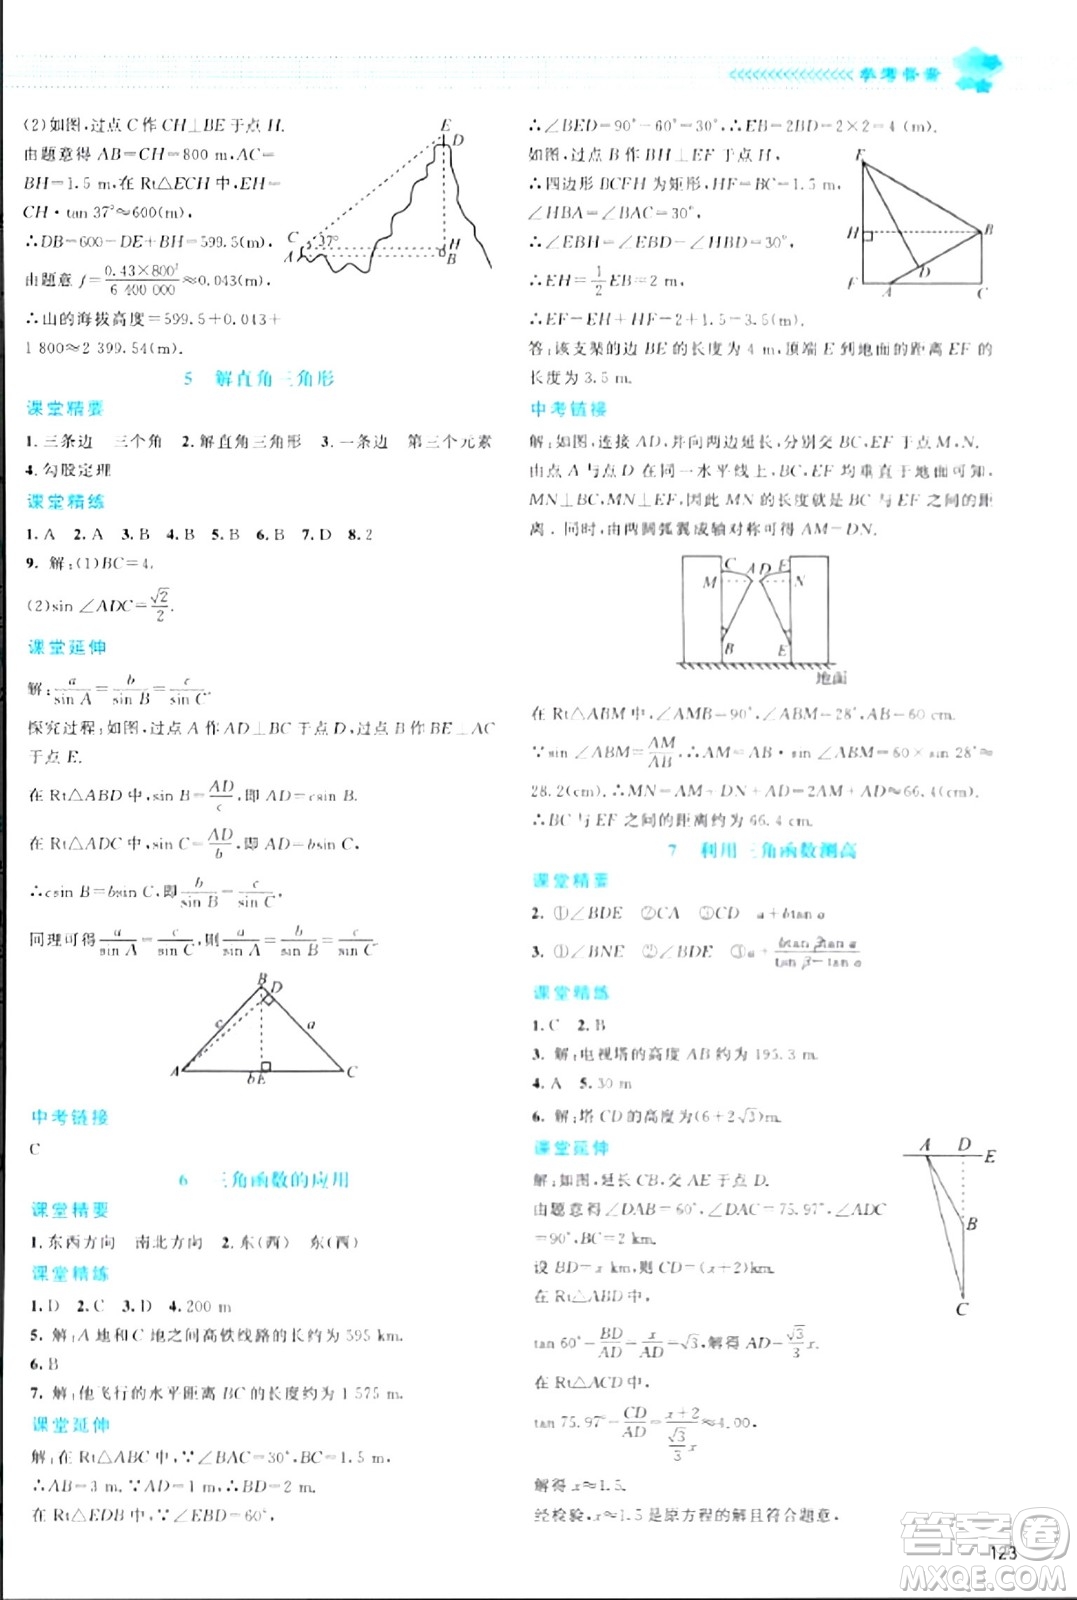 参考答案
(2)如图,过点 C 作 CH⊥BE 于点 H.
由题意得 AB=CH=800 m,AC=
BH=1.5 m,在 Rt△ECH 中,EH=
CH·tan 37°≈600(m).
∴DB=600-DE+BH=599.5(m).
由题意 f=0.43×800²/6 400 000≈0.043(m).
∴山的海拔高度=599.5+0.043+
1 800≈2 399.54(m).
E
D
C
37°
H
A
B
5 解直角三角形
课堂精要
1.三条边 三个角 2.解直角三角形 3.一条边 第三个元素
4.勾股定理
课堂精练
1.A 2.A 3.B 4.B 5.B 6.B 7.D 8.2
9.解:(1)BC=4.
(2)sin ∠ADC=√2/2.
课堂延伸
解:a/sin A=b/sin B=c/sin C.
探究过程:如图,过点 A 作 AD⊥BC 于点 D,过点 B 作 BE⊥AC
于点 E.
在 Rt△ABD 中,sin B=AD/c,即 AD=csin B.
在 Rt△ADC 中,sin C=AD/b,即 AD=bsin C.
∴csin B=bsin C.∴b/sin B=c/sin C.
同理可得a/sin A=c/sin C,则a/sin A=b/sin B=c/sin C.
B
D
c
a
A
b
E
C
中考链接
C
6 三角函数的应用
课堂精要
1.东西方向 南北方向 2.东(西) 东(西)
课堂精练
1.D 2.C 3.D 4.200 m
5.解:A 地和 C 地之间高铁线路的长约为 595 km.
6.B
7.解:他飞行的水平距离 BC 的长度约为 1 575 m.
课堂延伸
解:在 Rt△ABC 中,∵∠BAC=30°,BC=1.5 m,
∴AB=3 m.∵AD=1 m,∴BD=2 m.
在 Rt△EDB 中,∵∠EBD=60°,
∴∠BED=90°-60°=30°,∴EB=2BD=2×2=4 (m).
如图,过点 B 作 BH⊥EF 于点 H,
∴四边形 BCFH 为矩形,HF=BC=1.5 m,
∠HBA=∠BAC=30°,
∴∠EBH=∠EBD-∠HBD=30°,
∴EH=1/2EB=2(m),
∴EF=EH+HF=2+1.5=3.5(m).
答:该支架的边 BE 的长度为 4 m,顶端 E 到地面的距离 EF 的
长度为 3.5 m.
E
H
B
D
F
A
C
中考链接
解:如图,连接 AD,并向两边延长,分别交 BC,EF 于点 M,N.
由点 A 与点 D 在同一水平线上,BC,EF 均垂直于地面可知,
MN⊥BC,MN⊥EF,因此 MN 的长度就是 BC 与 EF 之间的距
离.同时,由两圆弧翼成轴对称可得 AM=DN.
C
A D
F
M
N
B
E
地面
在 Rt△ABM 中,∠AMB=90°,∠ABM=28°,AB=60 cm,
∵sin ∠ABM=AM/AB,∴AM=AB·sin ∠ABM=60×sin 28°≈
28.2(cm).∴MN=AM+DN+AD=2AM+AD≈66.4(cm).
∴BC 与 EF 之间的距离约为 66.4 cm.
7 利用三角函数测高
课堂精要
2.①∠BDE ②CA ③CD a+btan α
3.①∠BNE ②∠BDE ③a+btan βtan α/tan β-tan α
课堂精练
1.C 2.B
3.解:电视塔的高度 AB 约为 195.3 m.
4.A 5.30 m
6.解:塔 CD 的高度为(6+2√3)m.
课堂延伸
解:如图,延长 CB,交 AE 于点 D.
由题意得∠DAB=60°,∠DAC=75.97°,∠ADC
=90°,BC=2 km.
设 BD=x km,则 CD=(x+2)km.
在 Rt△ABD 中,
tan 60°=BD/AD=x/AD=√3,解得 AD=√3/3x.
在 Rt△ACD 中,
tan 75.97°=CD/AD=x+2/√3/3x≈4.00,
解得 x≈1.5.
经检验,x≈1.5 是原方程的解且符合题意.
A
D
E
B
C
123
答案卷
MXQE.COM